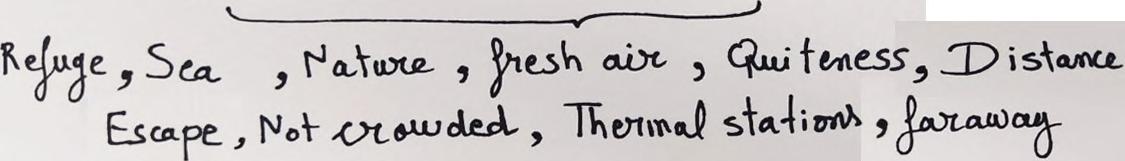 Refuge, Sea , Nature, fresh air, Quiteness, Distance
Escape, Not crowded, Thermal stations, faraway